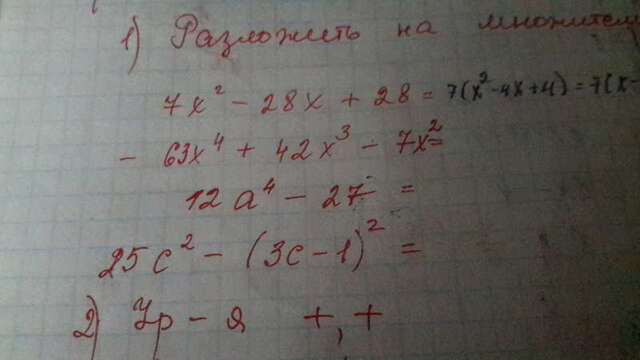 1) Разложить на множители
7x² - 28x + 28 = 7(x²-4x+4) = 7(x-
- 63x⁴ + 42x³ - 7x² =
12a⁴ - 27 =
25c² - (3c-1)² =
2) Ур-я +, +